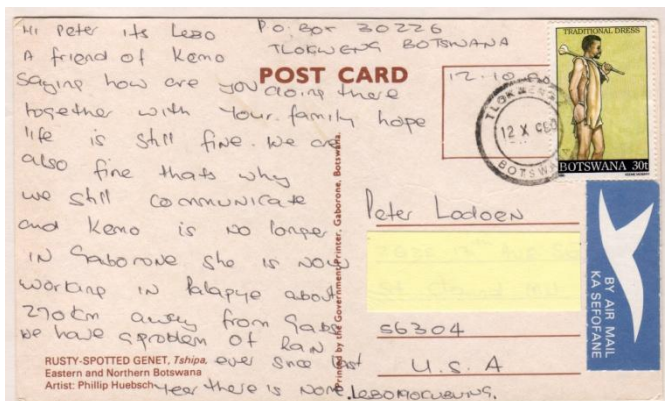 Hi Peter its Lebo
A friend of Kemo
Saying how are you doing there
together with your family hope
life is still fine. We are
also fine thats why
we still communicate
and Kemo is no longer
in Gaborone she is now
working in Palapye about
270km away from Gabs
We have a problem of Rain
ever since last
year there is none. Lebo
P.O. Box 30226
TLOKWENG BOTSWANA
POST CARD
12.10
TLOKWENG
12 X
BOTSWANA
TRADITIONAL DRESS
BOTSWANA 30t
BY AIR MAIL
KA SEFOFANE
Peter Lodoen
56304
U.S.A
Printed by the Government Printer, Gaborone, Botswana.
RUSTY-SPOTTED GENET, Tshipa,
Eastern and Northern Botswana
Artist: Phillip Huebsch